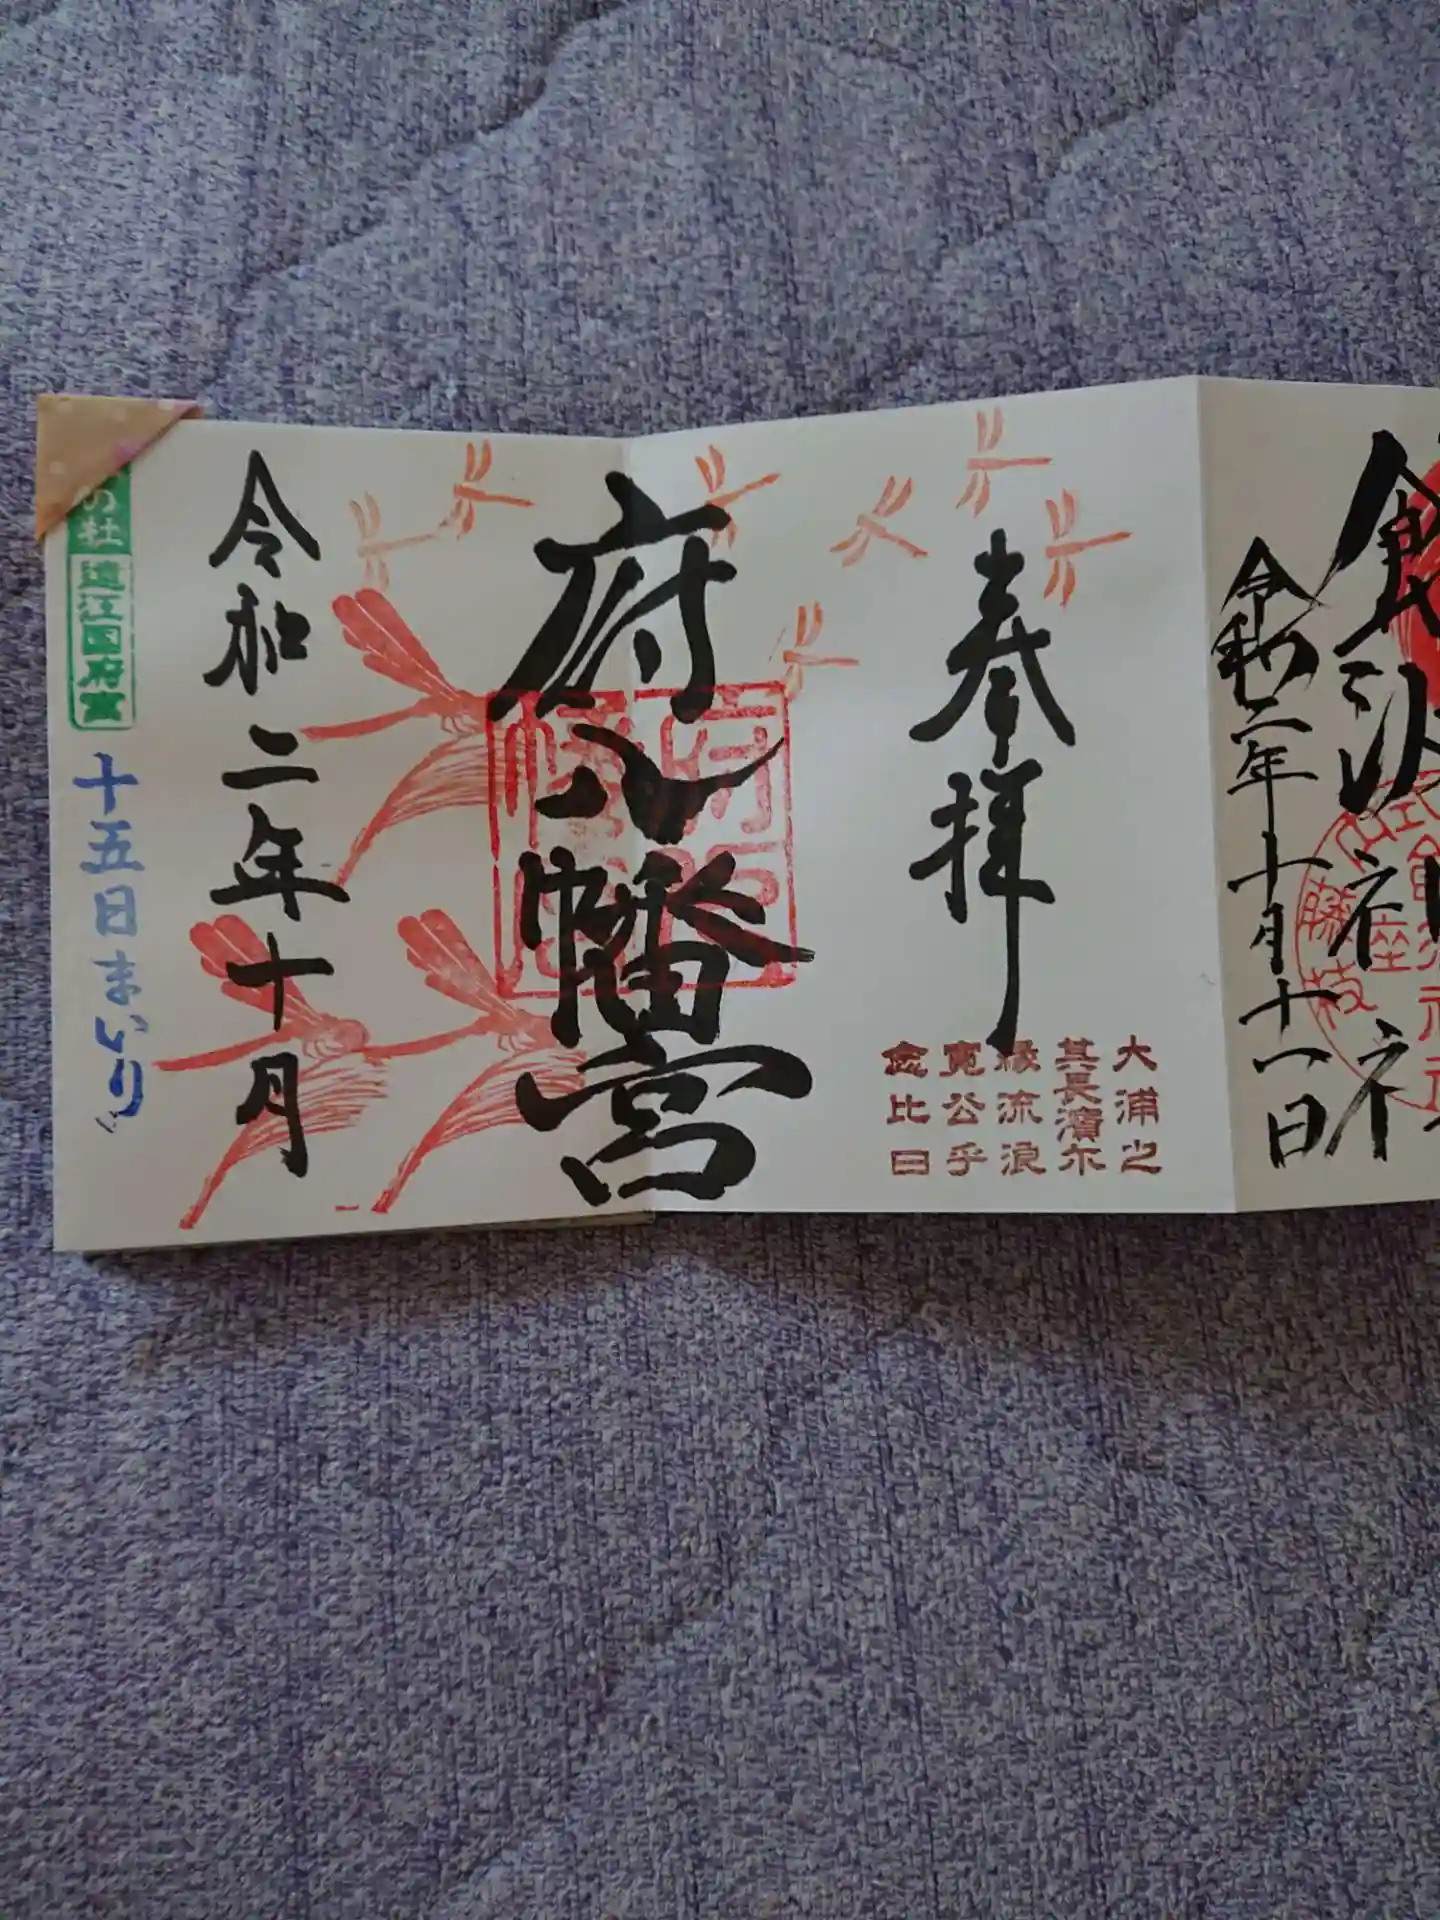 奉拝
大浦之
其長濱尓
縁流浪
寛公乎
念比日
府八幡宮
令和二年十月
の社
遠江国府宮
十五日まいり
令和二年十月十一日